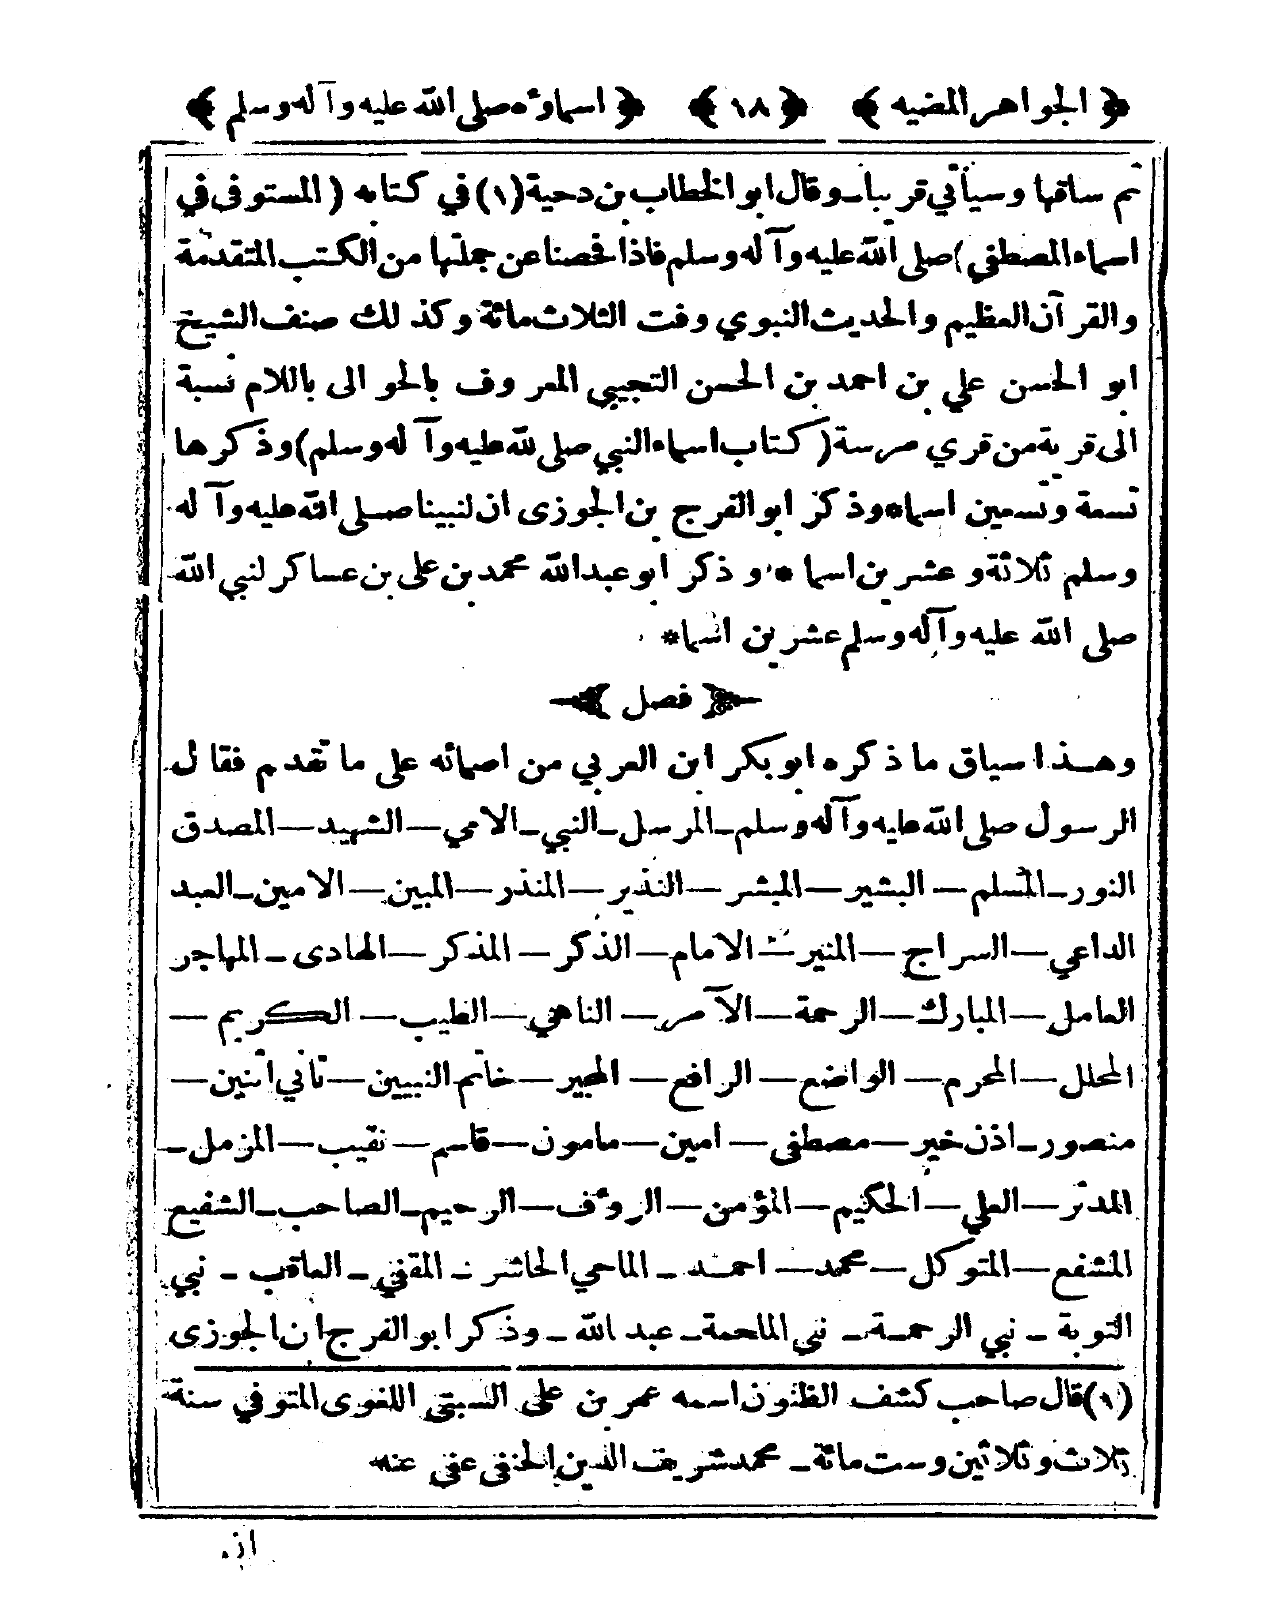 ﴿ الجواهر المضيه ﴾ ﴿ ١٨ ﴾ ﴿ اسماوءه صلى الله عليه وآله وسلم ﴾
ثم ساقها وسيأتي قريباً ــ وقال ابو الخطاب بن دحية (١) في كتابه ( المستوفى في
اسماء المصطفي ) صلى الله عليه وآله وسلم فاذا فحصنا عن جملتها من الكتب المتقدمة
والقرآن العظيم والحديث النبوي وفت الثلاث مائة وكذلك صنف الشيخ
ابو الحسن علي بن احمد بن الحسن التجيبي المعروف بالحوالى باللام نسبة
الى قرية من قري مرسة ( كتاب اسماء النبي صلى لله عليه وآله وسلم ) وذكرها
تسمة وتسمين اسماء* وذكر ابو الفرج بن الجوزى ان لنبينا صلى الله عليه وآله
وسلم ثلاثة وعشرين اسما * وذكر ابو عبد الله محمد بن على بن عساكر لنبي الله
صلى الله عليه وآله وسلم عشرين اسماء*
﴿ فصل ﴾
وهذا سياق ما ذكره ابو بكر ابن العربي من اسمائه على ما تقدم فقال
الرسول صلى الله عليه وآله وسلم ــ المرسل ــ النبي ــ الامي — الشهيد — المصدق
النور ــ المسلم — البشير — المبشر — النذير — المنذر — المبين — الامين ــ العبد
الداعي — السراج — المنير — الامام — الذكر — المذكر — الهادى ــ المهاجر
العامل — المبارك — الرحمة — الآمر — الناهي — الطيب — الكريم —
المحلل — المحرم — الواضع — الرافع — المجير — خاتم النبيين — ثاني اثنين —
منصور ــ اذن خير — مصطفى — امين — مامون — قاسم — نقيب — المزمل ــ
المدثر — العلي — الحكيم — المؤمن — الروءف — الرحيم ــ الصاحب ــ الشفيع
المشفع — المتوكل — محمد — احمد ــ الماحي الحاشر ــ المقفي ــ العاقب ــ نبي
التوبة ــ نبي الرحمة ــ نبي الملحمة ــ عبد الله ــ وذكر ابو الفرج ابن الجوزى
(١) قال صاحب كشف الظنون اسمه عمر بن على السبتي اللغوى المتوفي سنة
ثلاث وثلاثين وست مائة ــ محمد شريف الدين الحنفي عفي عنه
انه